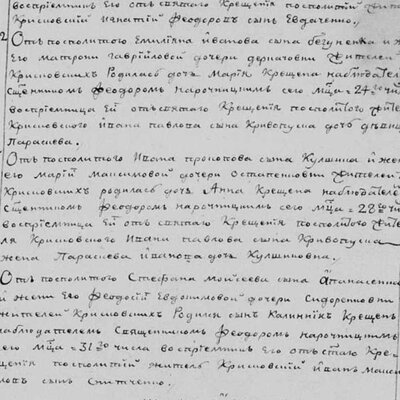 воспрiемникъ Его отъ святаго Крещенiя посполитiй
Крисовскiй Игнатiй Феодоровъ сынъ Евдаченко.
2
Отъ посполитого Емилiяна Иванова сына и
Его Матрони Гаврiйловой дочери жителей
Крисовскихъ Родилась дочь Марiя Крещена наблюдателе
Священникомъ Феодоромъ Нарочницкимъ сего мца 24го
воспрiемница Ей отъ святаго Крещенiя посполитого жите
Крисовского Ивана Павлова сына Кривопуска дочь
Парасева.
Отъ посполитого Ивана Прокопова сына Кулшина и жени
его Марiй Максимовой дочери Остапенковни жителей
Крисовскихъ родилась дочь Анна Крещена наблюдателе
Священникомъ Феодоромъ нарочницкимъ сего мца 28го
воспрiемница Ей отъ святаго Крещенiя посполитого жите
ля Крисовского Ивана Павлова сына Кривопуска
жена Парасева Иванова дочь Кулшиновна.
Отъ посполитого Стефана Моисеева сына Апанасенко
и жени Его Феодосiй Евдокимовой дочери Сидоренковни
жителей Крисовскихъ Родился сынъ Калинникъ Крещенъ
наблюдателемъ Священникомъ Феодоромъ нарочницкимъ
сего мца 31го числа воспрiемникъ Его отъ стаго Кре
щенiя посполитiй житель Крисовскiй Иванъ
ловъ сынъ